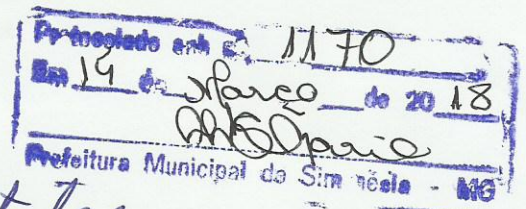 Protocolado sob nº 1170
Em 14 de Março de 20 18
Prefeitura Municipal de Simonésia - MG